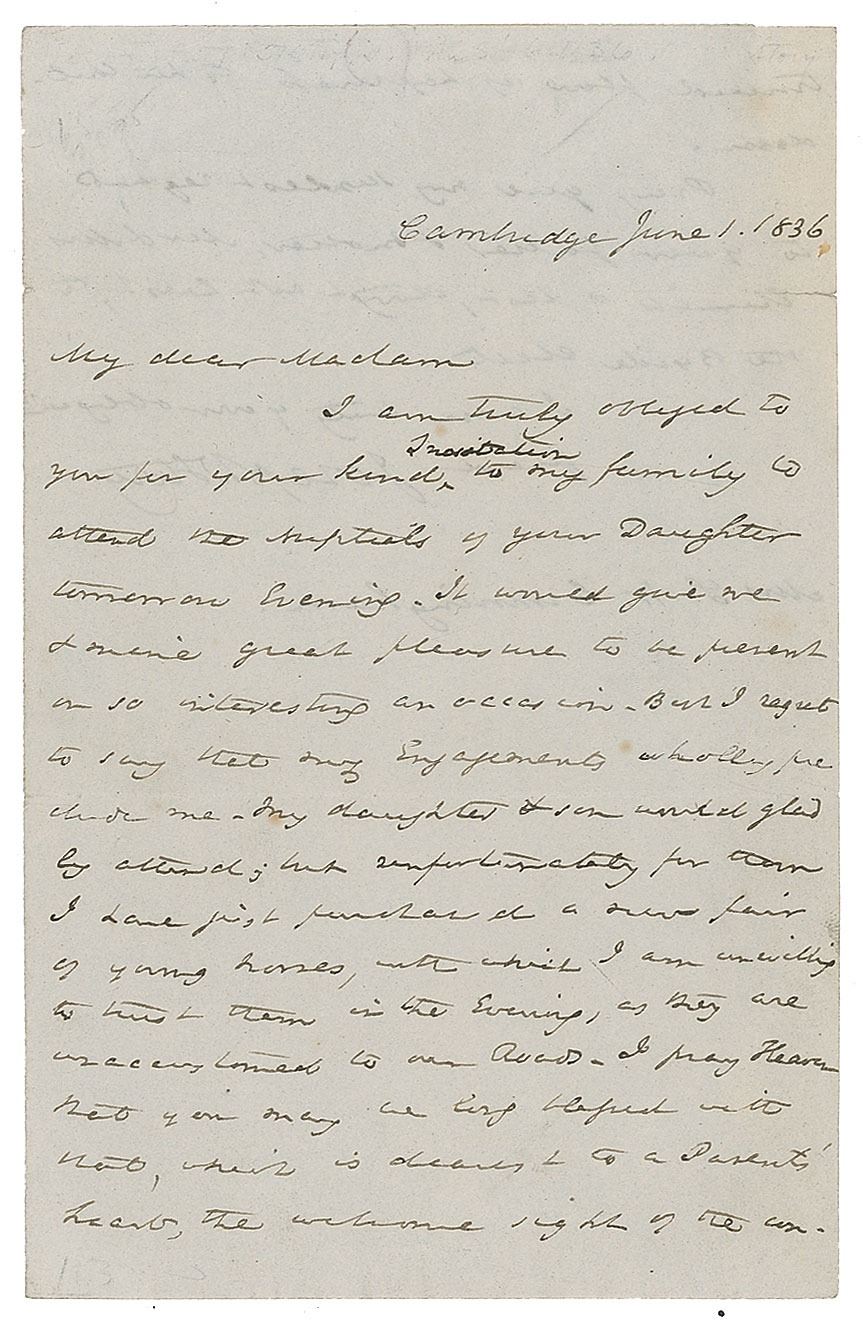 Cambridge June 1. 1836
My dear Madam
I am truly obliged to
Invitation
you for your kind ^ to my family to
attend the Nuptials of your Daughter
tomorrow Evening. It would give me
& mine great pleasure to be present
on so interesting an occasion. But I regret
to say that my Engagements wholly pre
clude me. My daughter & son would glad
ly attend; but unfortunately for them
I have just purchased a new pair
of young horses, with which I am unwilling
to trust them in the Evening, as they are
unaccustomed to our Roads. I pray Heaven
that you may be long blessed with
that, which is dearest to a Parents'
heart, the welcome sight of the con-